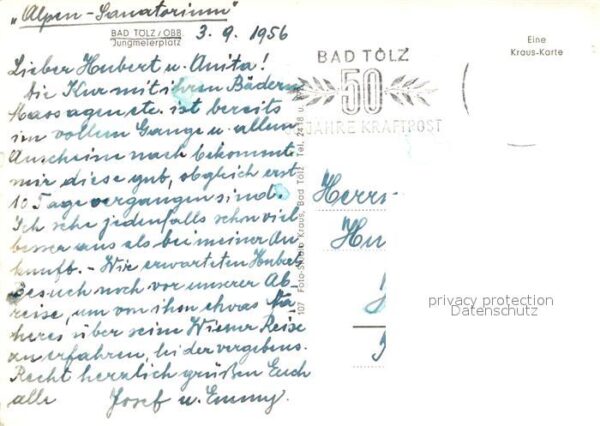 „Alpen-Sanatorium"
BAD TÖLZ/OBB
Jungmeierplatz
3. 9. 1956
Lieber Hubert u. Anita!
Die Kur mit ihren Bädern
Massagen etc. ist bereits
im vollem Gange u. allem
Anscheine nach bekommt
mir diese gut, obgleich erst
10 Tage vergangen sind.
Ich sehe jedenfalls schon viel
besser aus als bei meiner An
kunft. - Wir erwarteten Huberts
Besuch noch vor unserer Ab
reise, um von ihm etwas Nä
heres über seine Wiener Reise
zu erfahren, leider vergebens.
Recht herzlich grüßen Euch
alle Josef u. Emmy.
107 Foto-Studio Kraus, Bad Tölz Tel. 2418 u.
BAD TÖLZ
50
JAHRE KRAFTPOST
Eine
Kraus-Karte
Herrn
Hu
privacy protection
Datenschutz